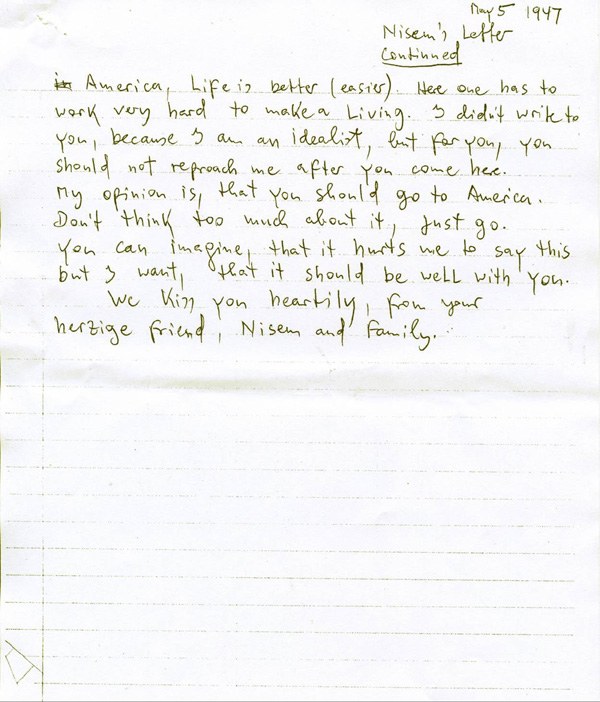 May 5 1947
Nisem's Letter
Continued
in America, Life is better (easier). Here one has to
work very hard to make a Living. I didn't write to
you, because I am an idealist, but for you, you
should not reproach me after you come here.
My opinion is, that you should go to America.
Don't think too much about it, just go.
you can imagine, that it hurts me to say this
but I want, that it should be well with you.
We Kiss you heartily, from your
herzige friend, Nisem and Family.